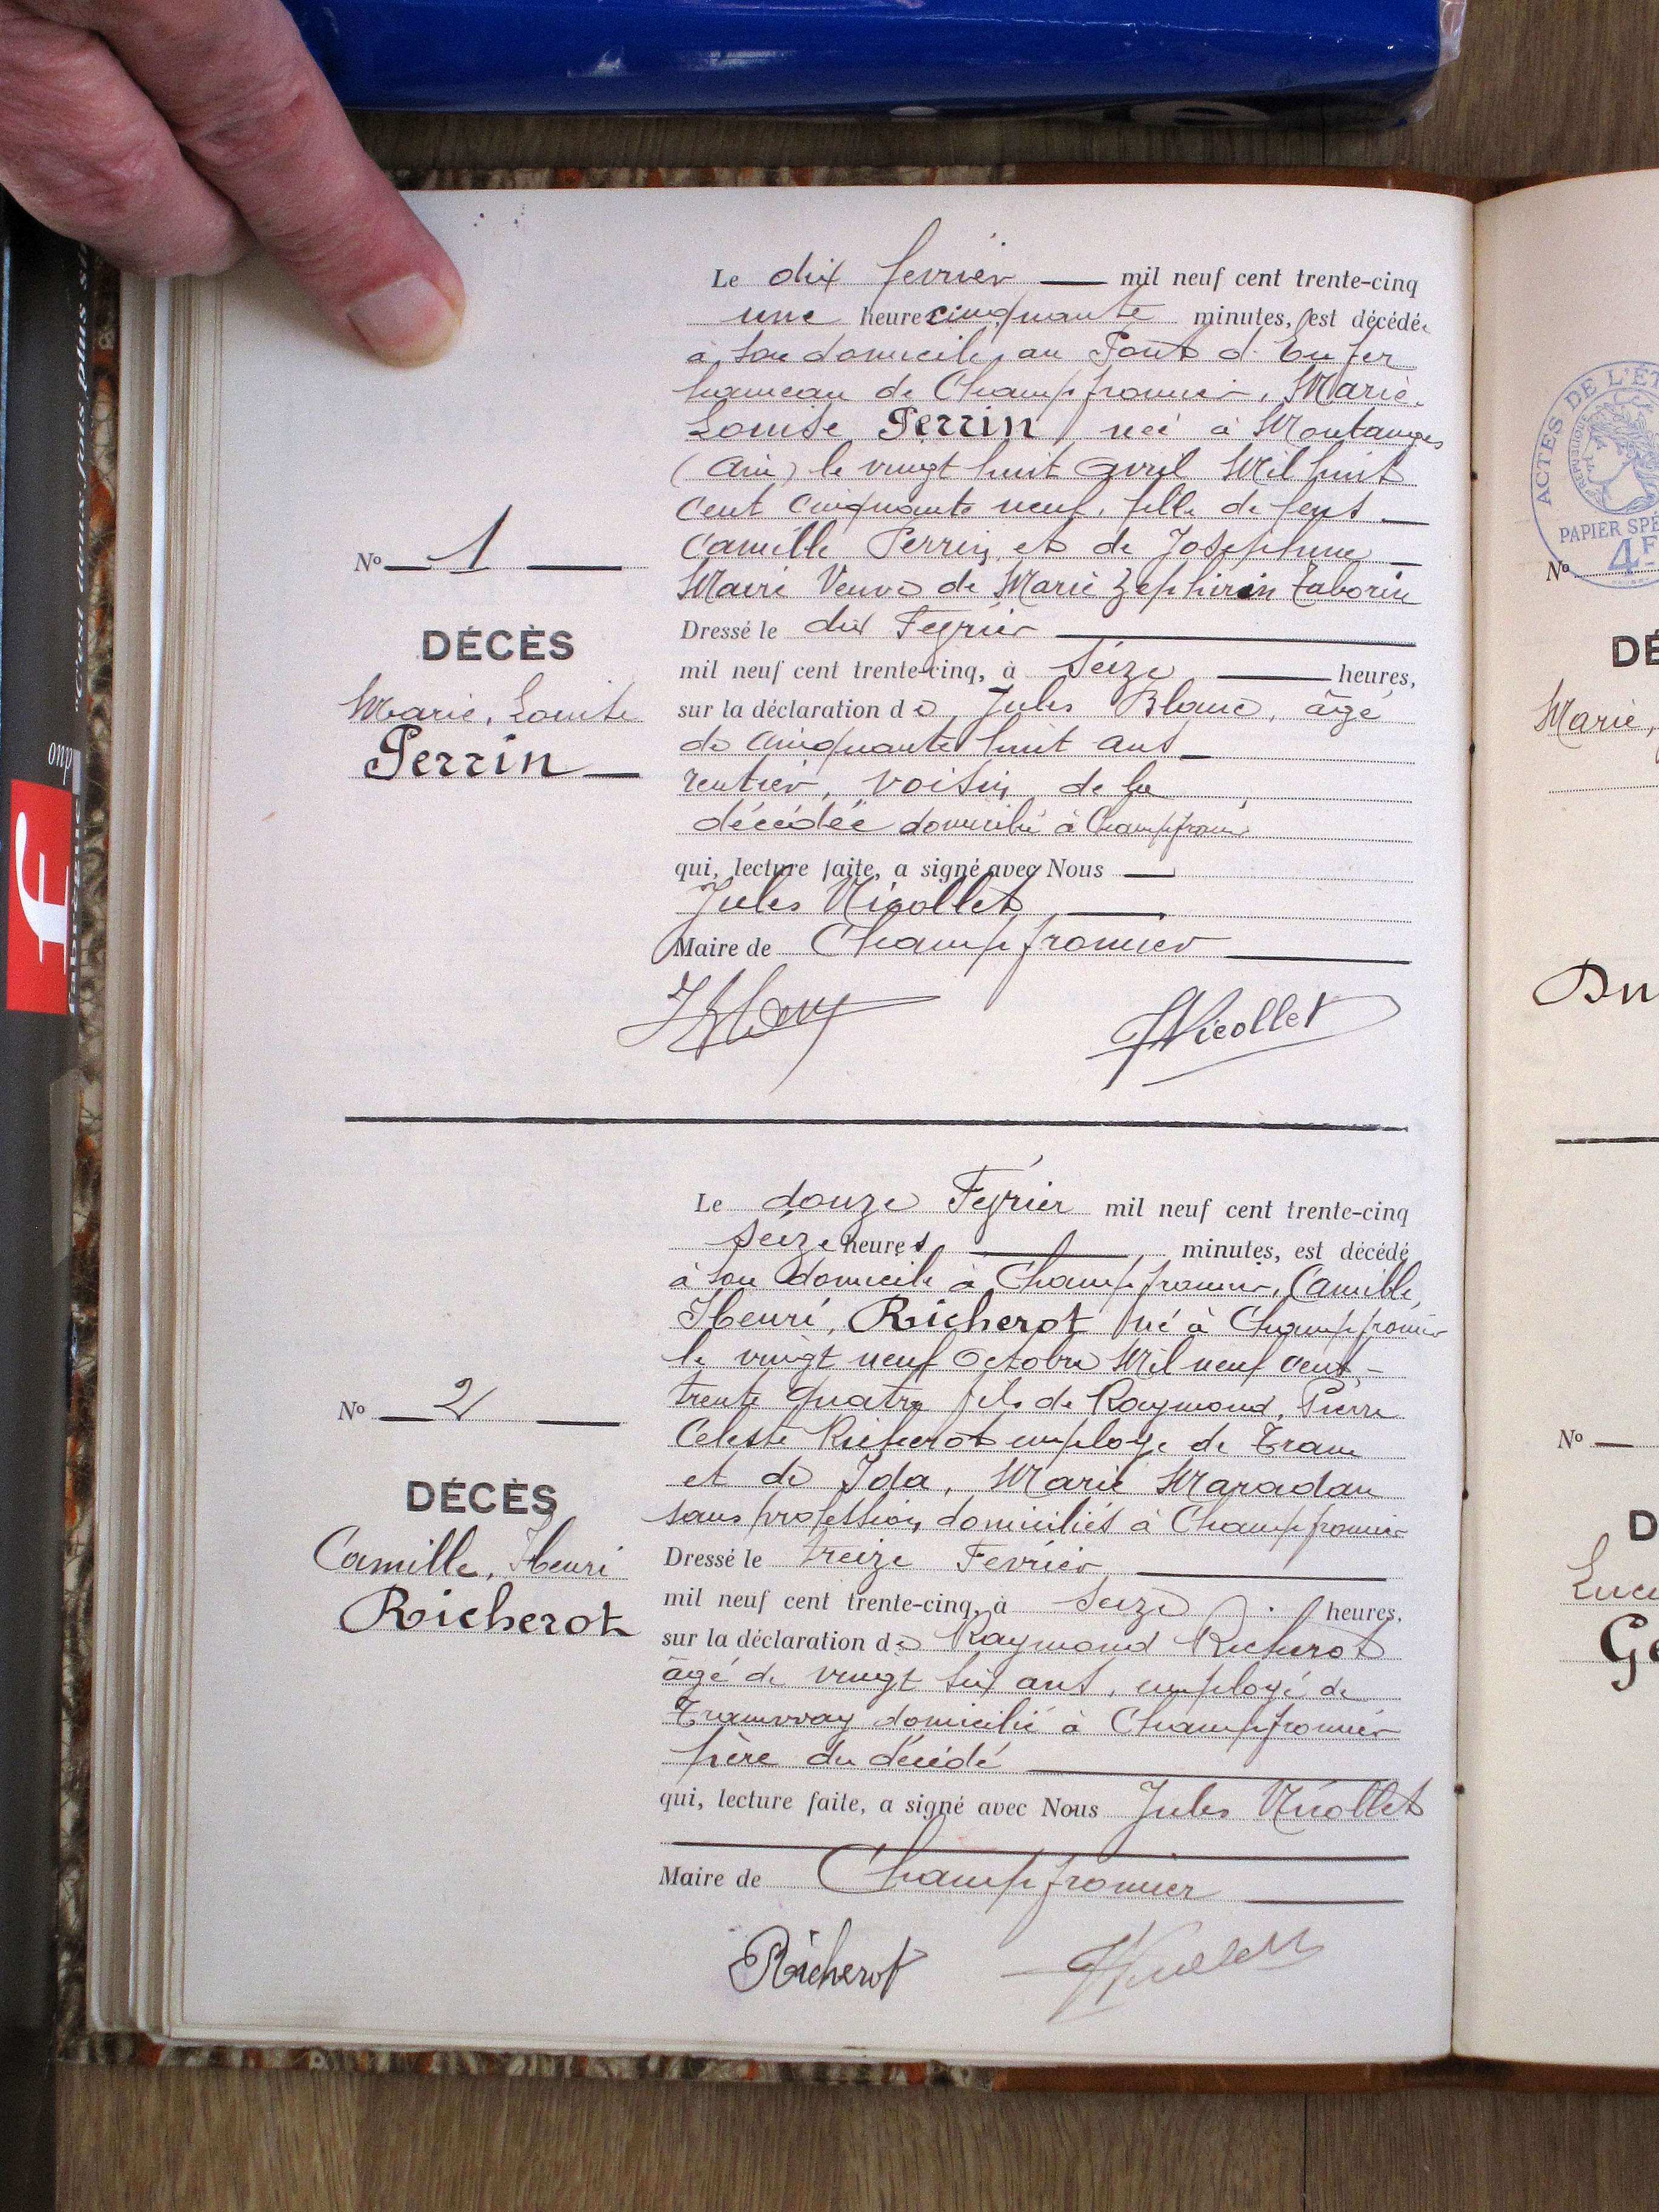 Le dix fevrier — mil neuf cent trente-cinq
une heure cinquante minutes, est décédée
à son domicile au Pont d'Enfer
hameau de Champfromier, Marie,
Louise Perrin née à Montanges
(Ain) le vingt huit avril Mil huit
cent cinquante neuf, fille de feus —
Camille Perrin et de Joséphine —
Veuve de Marie Zephirin Taborin
Nº 1
DÉCÈS
Marie, Louise
Perrin
Dressé le dix Février
mil neuf cent trente-cinq, à Seize heures,
sur la déclaration de Jules Blanc, âgé
de cinquante huit ans —
rentier, voisin de la
décédée domicilié à Champfromier
qui, lecture faite, a signé avec Nous —
Jules Nicollet
Maire de Champfromier
JNicollet
Le douze Février mil neuf cent trente-cinq
seize heures — minutes, est décédé
à son domicile à Champfromier, Camille,
Henri, Richerot né à Champfromier
le vingt neuf Octobre Mil neuf cent -
trente quatre fils de Raymond, Pierre
Celeste Richerot employé de Tram
et de Ida, Marie Maradan
sans profession, domiciliés à Champfromier
Nº 2
DÉCÈS
Camille, Henri
Richerot
Dressé le treize Fevrier
mil neuf cent trente-cinq, à Seize heures,
sur la déclaration de Raymond Richerot
âgé de vingt six ans, employé de
Tramway domicilié à Champfromier
père du décédé
qui, lecture faite, a signé avec Nous Jules Nicollet
Maire de Champfromier
Richerot
ACTES DE L'ÉT
PAPIER SPÉ
4F
Nº
DÉ
Marie,
Du
Nº
D
Luci
Ge